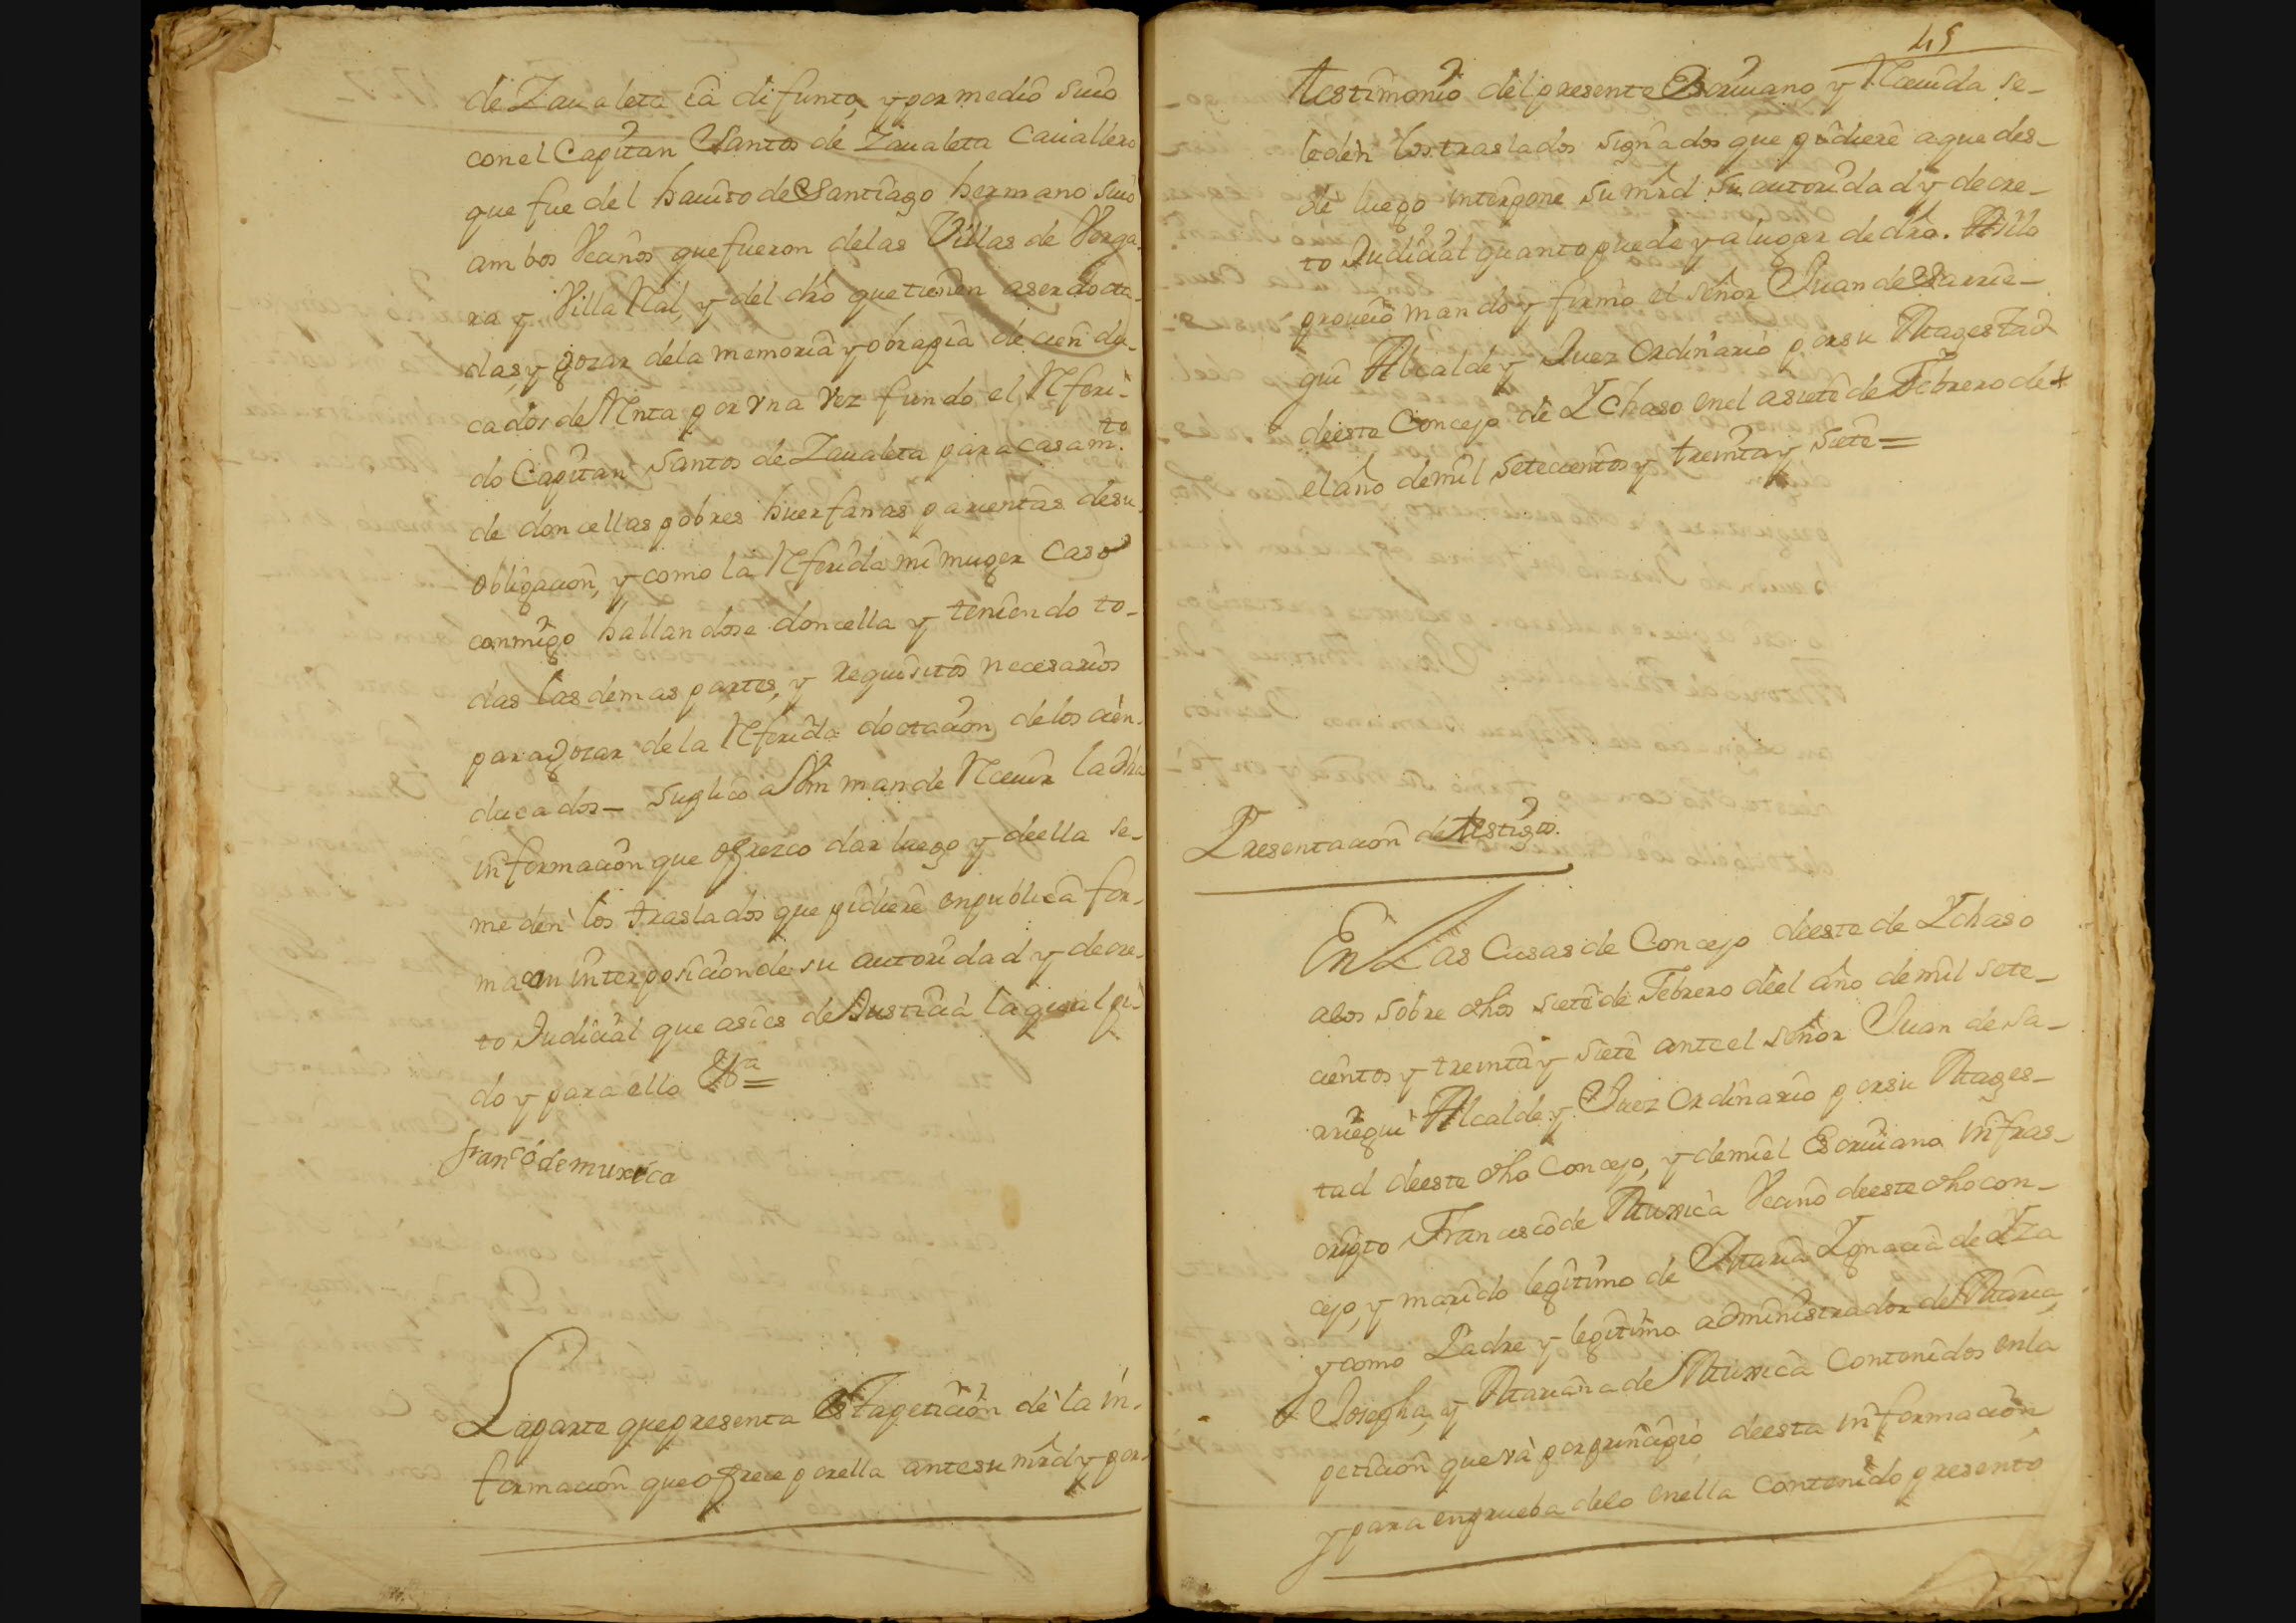 de Zaualeta ia difunto, y por medio suio
con el Capitan Santos de Zaualeta Cauallero
que fue del hauito de Santiago hermano suio
ambos Vecinos que fueron de las Villas de Verga
ra y Villa Rial, y del dho que tienen a ser dota-
das, y gozar de la memoria y obra pia de cien du-
cados de Renta por vna vez fundo el Referi-
do Capitan Santos de Zaualeta para casamto
de doncellas pobres huerfanas parientas de su
obligacion, y como la Referida mi muger Caso
conmigo hallandose doncella y teniendo to-
das las demas partes, y requisitos necesarios
para gozar de la Referida dotacion de los cien
ducados - Suplico a Vm mande Receuir la dha
informacion que ofrezco dar luego y de ella se-
me den los traslados que pidiere en publica for-
ma con interposicion de su autoridad y decre-
to Judicial que asi es de Justicia la qual pi-
do y para ello &ra=
Franco de muxica
La parte que presenta Esta peticion dè la in-
formacion que ofrece por ella ante su mrd y por
45
testimonio del presente Escriuano y Receuida se-
le dèn los traslados signados que pidiere a que des-
de luego interpone su mrd su autoridad y decre-
to Judicial quanto puede y a lugar de dro. Asi lo
proueiò mando y firmo el señor Juan de Sarrie-
gui Alcalde y Juez Ordinario por su Magestad
de este Concejo de Ychaso en el a siete de Febrero de
el año de mil setecientos y treinta y siete=
Presentacion de testigos.
En Las Casas de Concejo de este de Ychaso
a los sobre dhos siete de Febrero de el año de mil sete-
cientos y treinta y siete ante el señor Juan de Sa-
rriegui Alcalde y Juez Ordinario por su Mages-
tad de este dho Concejo, y de mi el Escriuano infras-
cripto Francisco de Muxica Vecino de este dho con-
cejo, y marido legitimo de Maria Ygnacia de Yza
y como Padre y legitimo administrador de Maria
Josepha, y Mariana de Muxica Contenidos en la
peticion que và por principio de esta informacion
y para en prueba de lo en ella Contenido presento